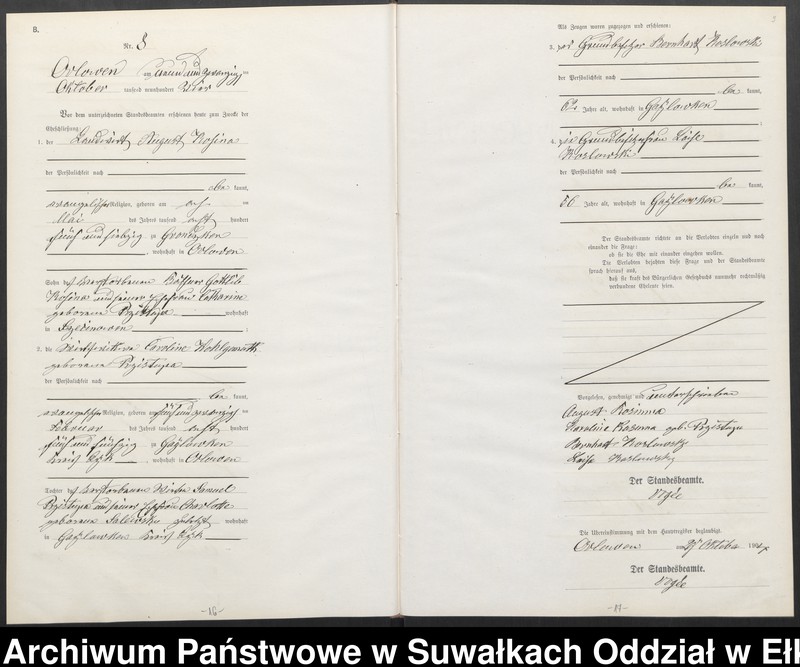 B.
Nr. 8
Orlowen am neunundzwanzigsten
Oktober tausend neunhundert vier
Vor dem unterzeichneten Standesbeamten erschienen heute zum Zwecke der
Eheschließung:
1. der Landwirt August Kosina
der Persönlichkeit nach
kannt,
evangelischer Religion, geboren am
Mai des Jahres tausend acht hundert
fünf und siebzig zu Gronsken
, wohnhaft in Orlowen
Sohn des verstorbenen Gottlieb
Kosina und seiner Ehefrau Catharine
geborene Przistupa wohnhaft
in ;
2. die Caroline
geborene Przistupa
der Persönlichkeit nach
kannt,
evangelischer Religion, geboren am fünf und zwanzigsten
Februar des Jahres tausend acht hundert
fünf und fünfzig zu Gaylowken
Kreis Lyck , wohnhaft in Orlowen
Tochter des verstorbenen Wirts Samuel
Przistupa und seiner Ehefrau Charlotte
geborene Salewski zuletzt wohnhaft
in Gaylowken Kreis Lyck
-16-
3
Als Zeugen waren zugezogen und erschienen:
3. der Grundbesitzer Bernhart Koslowski
der Persönlichkeit nach
kannt,
62 Jahre alt, wohnhaft in Gaylowken
;
4. die Grundbesitzerfrau Luise
Koslowski
der Persönlichkeit nach
kannt,
56 Jahre alt, wohnhaft in Gaylowken
Der Standesbeamte richtete an die Verlobten einzeln und nach
einander die Frage:
ob sie die Ehe mit einander eingehen wollen.
Die Verlobten bejahten diese Frage und der Standesbeamte
sprach hierauf aus,
daß sie kraft des Bürgerlichen Gesetzbuchs nunmehr rechtmäßig
verbundene Eheleute seien.
Vorgelesen, genehmigt und unterschrieben
August Kosinna
Karoline Kosinna geb. Przistupa
Bernhatt Koslowsky
Luise Koslowsky
Der Standesbeamte.
Die Übereinstimmung mit dem Hauptregister beglaubigt.
Orlowen am 29 Oktober 1904
Der Standesbeamte.
-17-
Archiwum Państwowe w Suwałkach Oddział w Eł